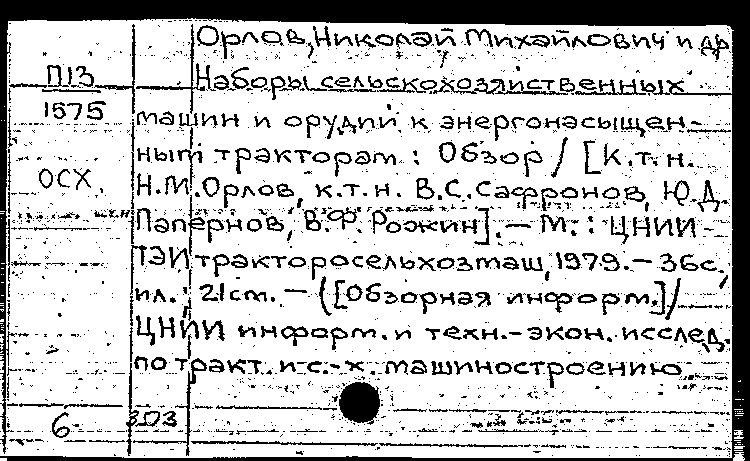 Орлов, Николай Михайлович и др
П13 Наборы сельскохозяйственных
1575 машин и орудий к энергонасыщен-
ным тракторам : Обзор / [К.т.н.
ОСХ. Н.М. Орлов, к.т.н. В.С. Сафронов, Ю.Д.
Папернов, В.Ф. Рожкин]. — М. : ЦНИИ
ТЭИ тракторосельхозмаш, 1979. — 36с.,
ил. ; 21см. — ([Обзорная информ.] /
ЦНИИ информ. и техн.-экон. исслед.
по тракт. и с.-х. машиностроению
6